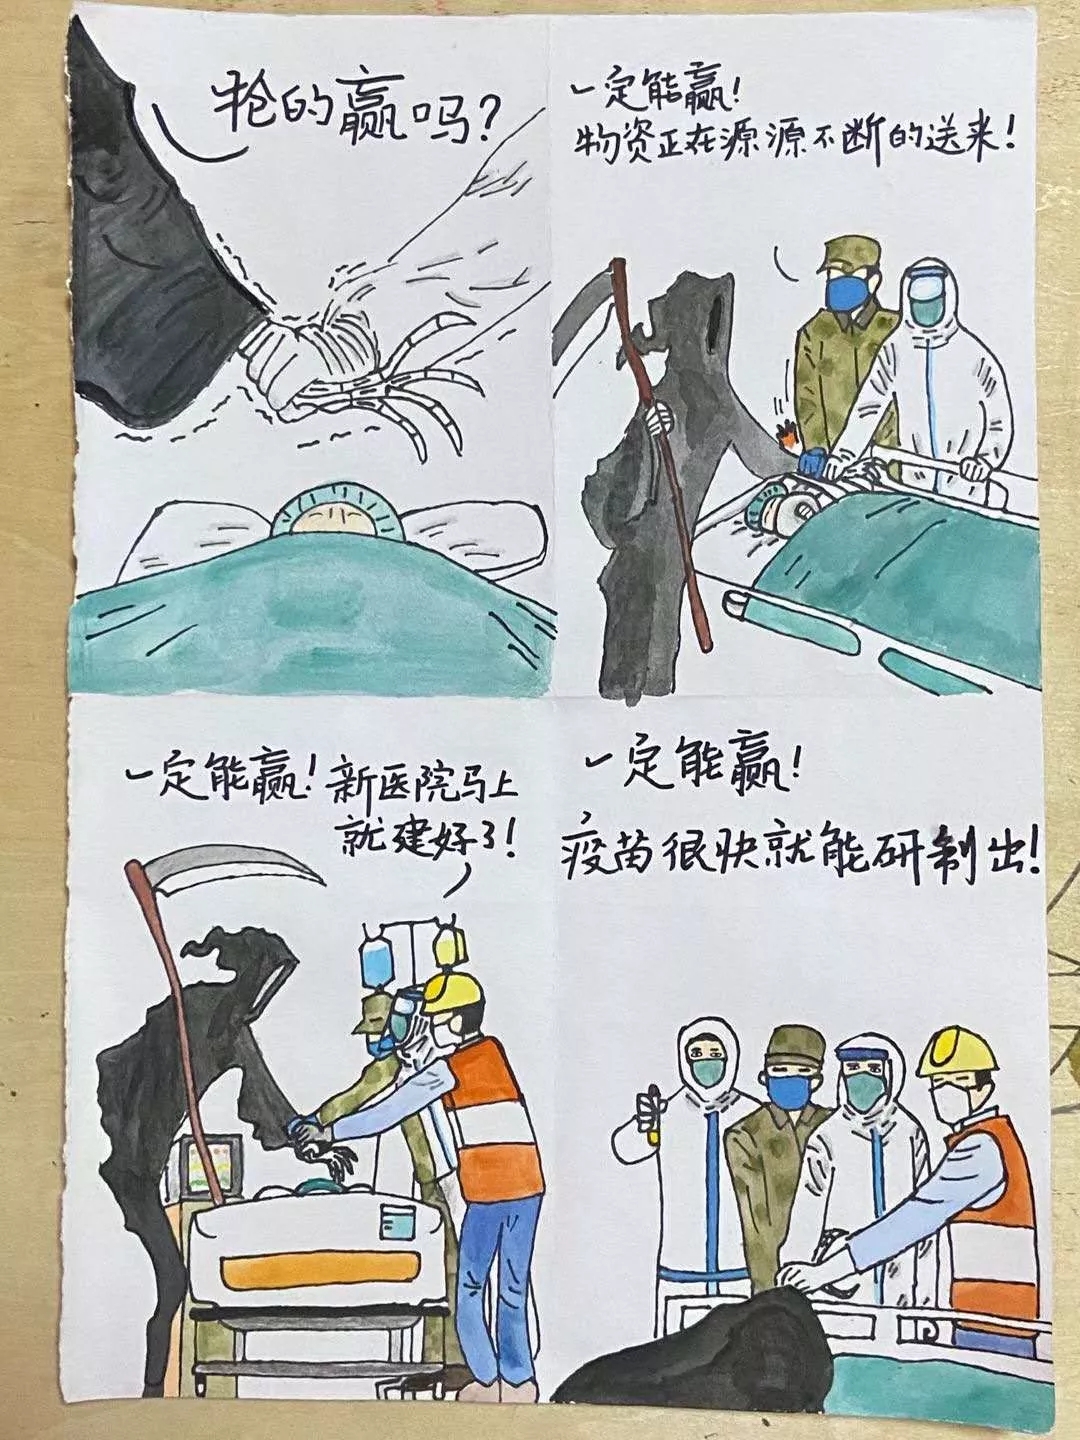 抢的赢吗?
一定能赢!
物资正在源源不断的送来!
一定能赢!新医院马上
就建好了!
一定能赢!
疫苗很快就能研制出!